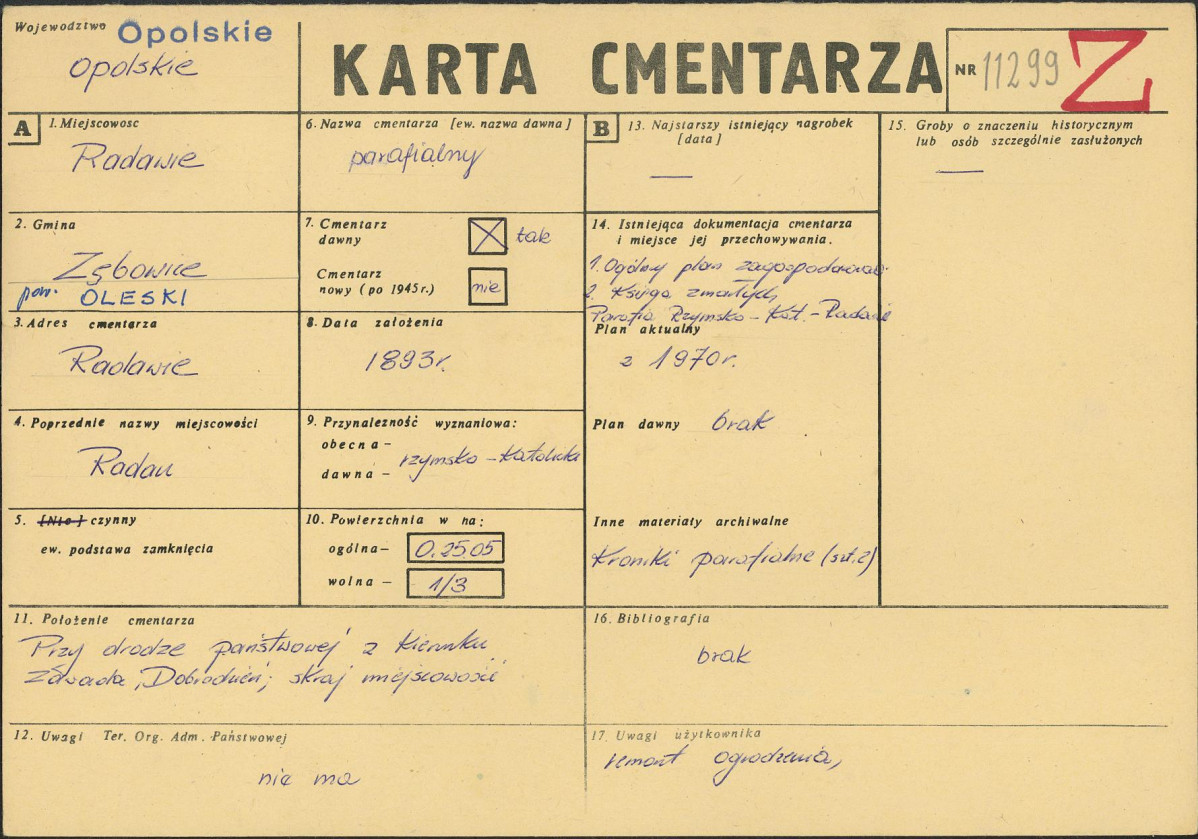 Województwo Opolskie
opolskie
KARTA CMENTARZA
NR 11299 Z
A 1. Miejscowosc
Radawie
2. Gmina
Zębowice
pow. OLESKI
3. Adres cmentarza
Radawie
4. Poprzednie nazwy miejscowości
Radau
5. [Nie] czynny
ew. podstawa zamknięcia
6. Nazwa cmentarza [ew. nazwa dawna]
parafialny
7. Cmentarz
dawny
tak
Cmentarz
nowy (po 1945 r.)
nie
8. Data założenia
1893r.
9. Przynalezność wyznaniowa:
obecna –
rzymsko - Katolicka
dawna –
10. Powierzchnia w ha:
ogólna – 0.25.05
wolna – 1/3
B 13. Najstarszy istniejący nagrobek
[data]
—
14. Istniejąca dokumentacja cmentarza
i miejsce jej przechowywania.
1. Ogólny plan
2. Księga zmarłych
Parafia Rzymsko - Kat. - Radawie
Plan aktualny
z 1970r.
Plan dawny brak
Inne materiały archiwalne
Kroniki parafialne (szt. 2)
15. Groby o znaczeniu historycznym
lub osób szczególnie zasłużonych
—
11. Położenie cmentarza
Przy drodze państwowej z kierunku
Zawada, Dobrodzień; skraj miejscowości
12. Uwagi Ter. Org. Adm. Państwowej
nie ma
16. Bibliografia
brak
17. Uwagi użytkownika
remont ogrodzenia,